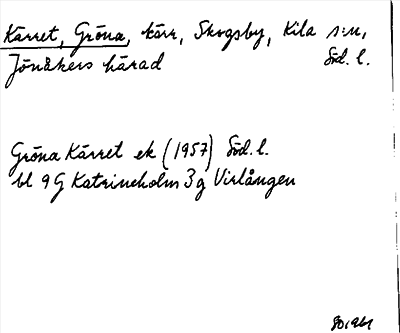 Kärret, Gröna, kärr, Skogsby, Kila s:n,
Jönåkers härad Söd. l.
Gröna Kärret ek (1957) Söd. l.
bl 9G Katrineholm 3g Virlången